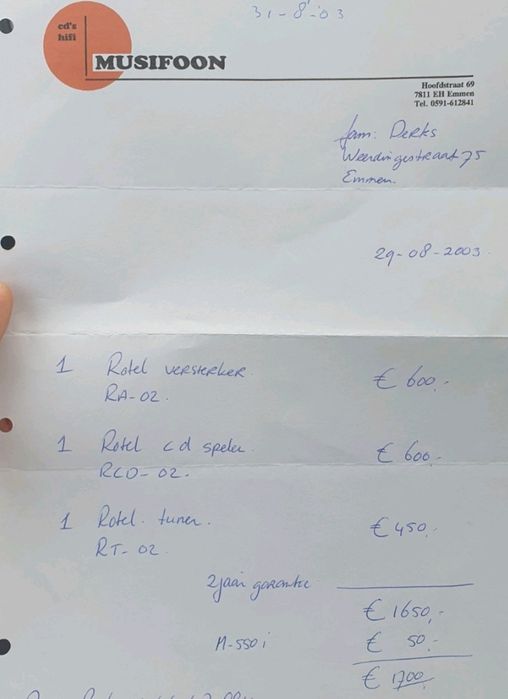 31-8-03
cd's
hifi
MUSIFOON
Hoofdstraat 69
7811 EH Emmen
Tel. 0591-612841
fam: Derks
Weerdingestraat 75
Emmen.
29-08-2003.
1 Rotel versterker. € 600.-
RA-02.
1 Rotel cd speler. € 600.-
RCD-02.
1 Rotel. tuner. € 450.-
RT-02.
2 jaar garantie
€ 1650,-
M-550i € 50.-
€ 1700,-